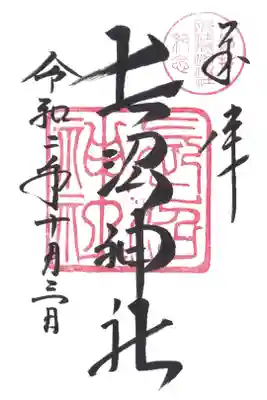 奉拝
長沼神社
令和二年十月三日